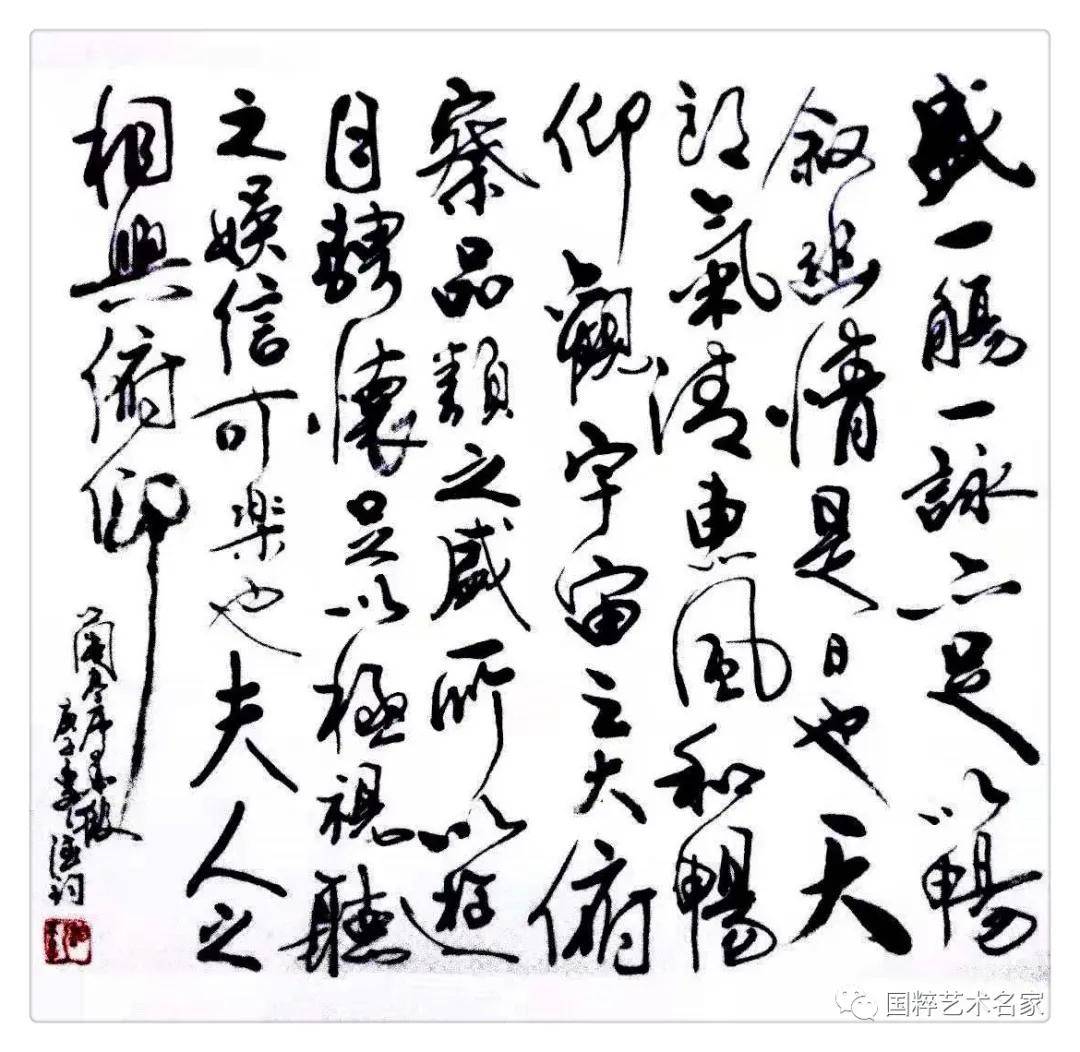 盛一觴一詠亦足以暢
叙幽情是日也天
朗氣清惠風和暢
仰觀宇宙之大俯
察品類之盛所以遊
目騁懷足以極視聽
之娛信可楽也夫人之
相與俯仰
蘭亭序
国粹艺术名家